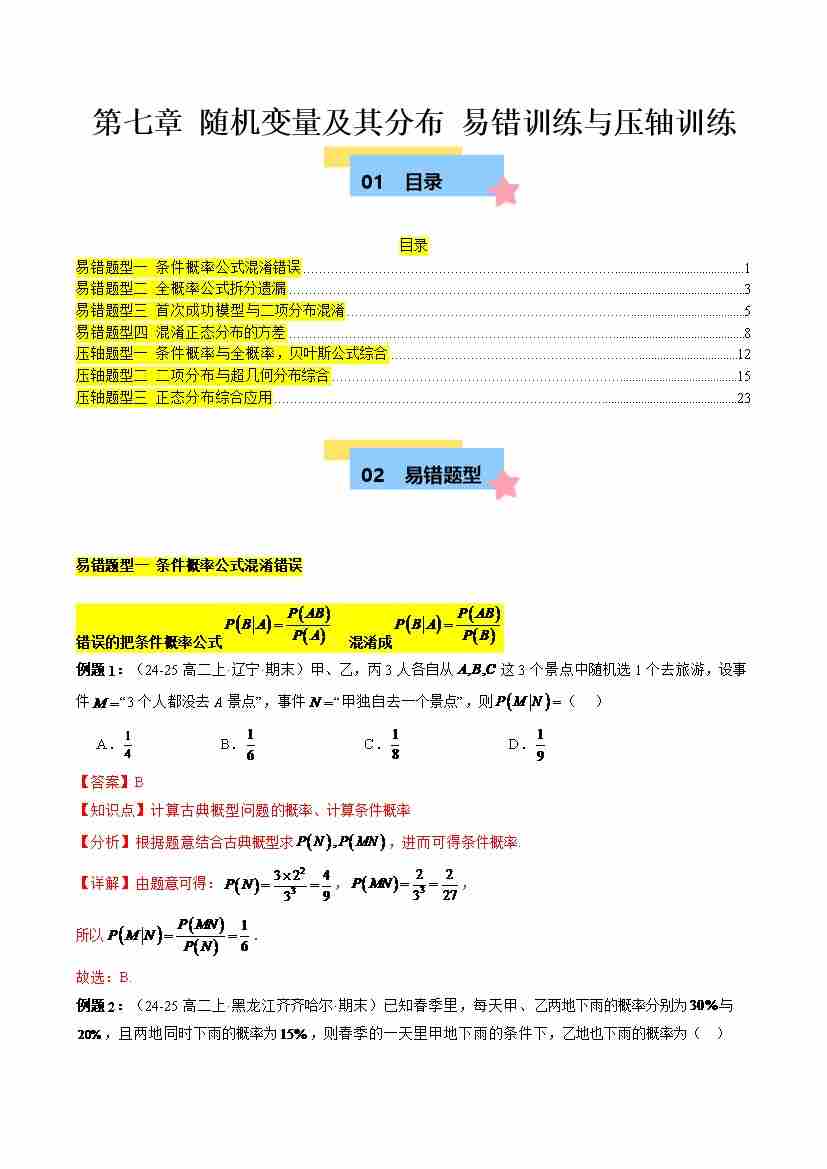 第七章 随机变量及其分布 易错训练与压轴训练
01 目录
目录
易错题型一 条件概率公式混淆错误........1
易错题型二 全概率公式拆分遗漏........3
易错题型三 首次成功模型与二项分布混淆........5
易错题型四 混淆正态分布的方差........8
压轴题型一 条件概率与全概率，贝叶斯公式综合........12
压轴题型二 二项分布与超几何分布综合........15
压轴题型三 正态分布综合应用........23
02 易错题型
易错题型一 条件概率公式混淆错误
错误的把条件概率公式 P(B|A)=P(AB)/P(A) 混淆成 P(B|A)=P(AB)/P(B)
例题1：（24-25高二上·辽宁·期末）甲、乙，丙3人各自从A,B,C这3个景点中随机选1个去旅游，设事
件M=“3个人都没去A景点”，事件N=“甲独自去一个景点”，则P(M|N)=（ ）
A．1/4 B．1/6 C．1/8 D．1/9
【答案】B
【知识点】计算古典概型问题的概率、计算条件概率
【分析】根据题意结合古典概型求P(N),P(MN)，进而可得条件概率.
【详解】由题意可得：P(N)=3×2²/3³=4/9，P(MN)=2/3³=2/27，
所以P(M|N)=P(MN)/P(N)=1/6．
故选：B.
例题2：（24-25高二上·黑龙江齐齐哈尔·期末）已知春季里，每天甲、乙两地下雨的概率分别为30%与
20%，且两地同时下雨的概率为15%，则春季的一天里甲地下雨的条件下，乙地也下雨的概率为（ ）